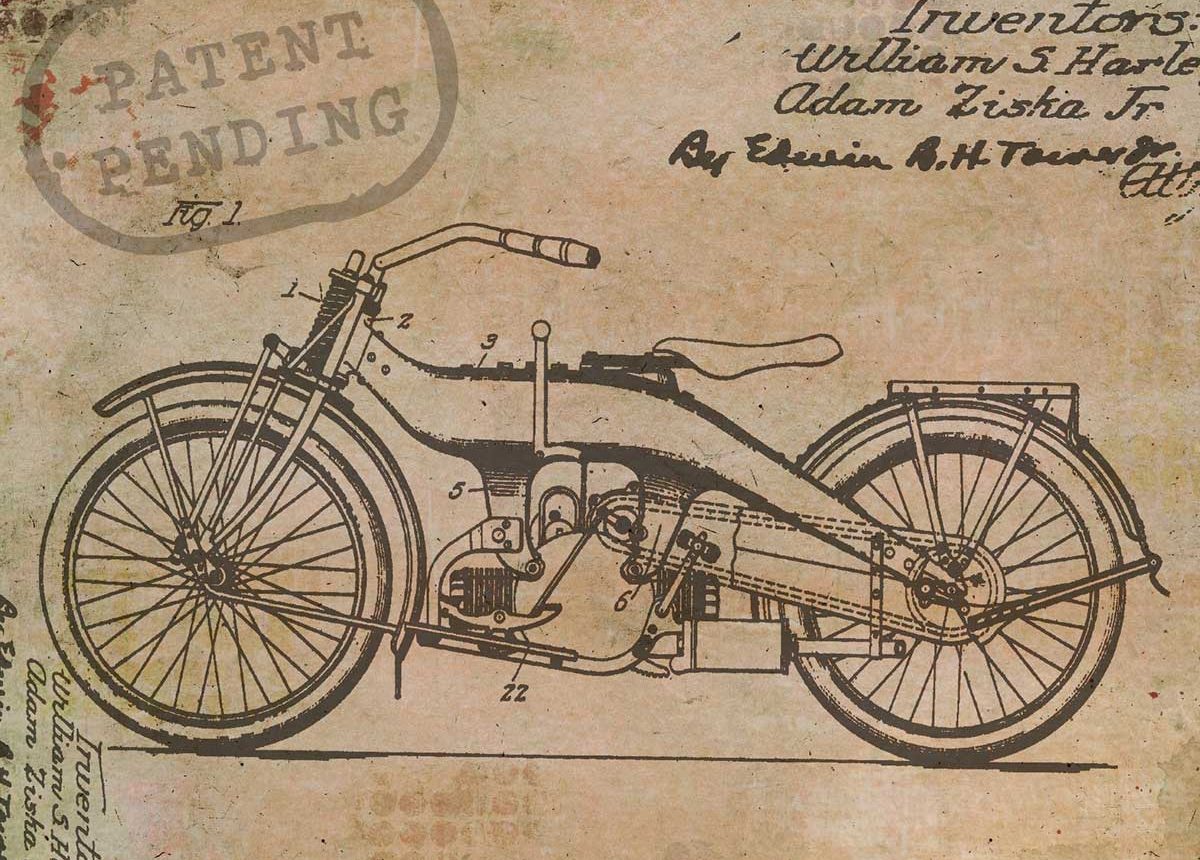 PATENT
PENDING
Inventors:
William S. Harle
Adam Ziska Jr
By Edwin B.H. Tower Jr.
Fig. 1.
1
2
3
5
6
22
Invent
William S. H
Adam Ziska
By Edwin B H Tower